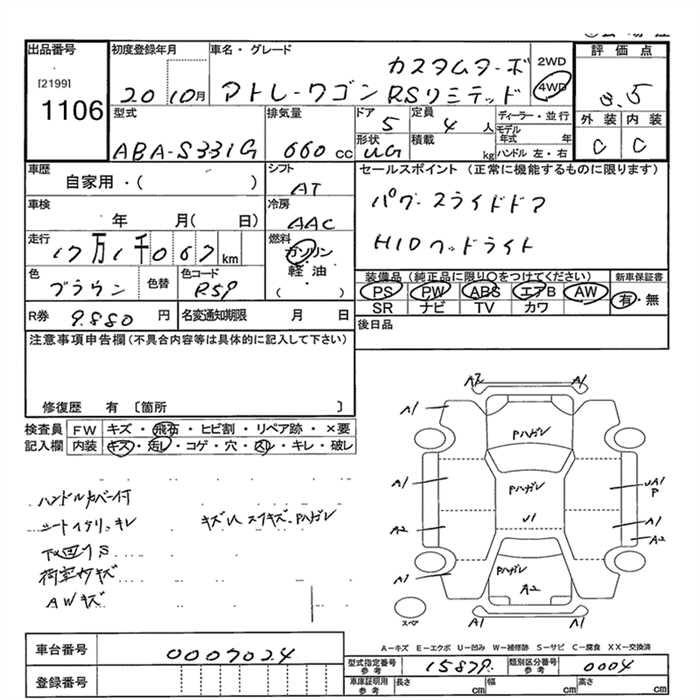 出品番号
[2199]
1106
初度登録年月
20 10月
車名・グレード
カスタムターボ
アトレーワゴン RSリミテッド
2WD
4WD
評価点
3.5
外装 内装
C C
型式
ABA-S331G
排気量
660 cc
ドア
5
定員
4 人
ディーラー・並行
モデル年式 年
形状
UG
積載
kg
ハンドル 左・右
車歴
自家用・( )
シフト
AT
セールスポイント (正常に機能するものに限ります)
パワースライドドア
HIDヘッドライト
車検
年 月( 日)
冷房
AAC
走行
17万1千067 km
燃料
ガソリン・
軽油・
( )
色
ブラウン
色替
色コード
R59
装備品 (純正品に限り○をつけてください)
PS PW ABS エアB AW
SR ナビ TV カワ
新車保証書
有・無
R券
9.880 円
名変通知期限 月 日
後日品
注意事項申告欄(不具合内容等は具体的に記入して下さい)
修復歴 有 〔箇所 〕
検査員記入欄
FW キズ・飛石・ヒビ割・リペア跡・×要
内装 キズ・汚レ・コゲ・穴・スレ・キレ・破レ
ハンドルカバー付
シートイタリ、キレ
下回りS
荷室内キズ
AWキズ
キズU スリキズ・Pハガレ
A2 A1
A1
Pハガレ
A1
Pハガレ
UA1
P
A2
U1
A1
A2
A1
Pハガレ
A2
A1 A1
スペア
A-キズ E-エクボ U-凹み W-補修跡 S-サビ C-腐食 XX-交換済
車台番号
0007024
登録番号
型式指定番号 参考
15879
類別区分番号 参考
0004
車庫証明用 参考
長さ cm
幅 cm
高さ cm